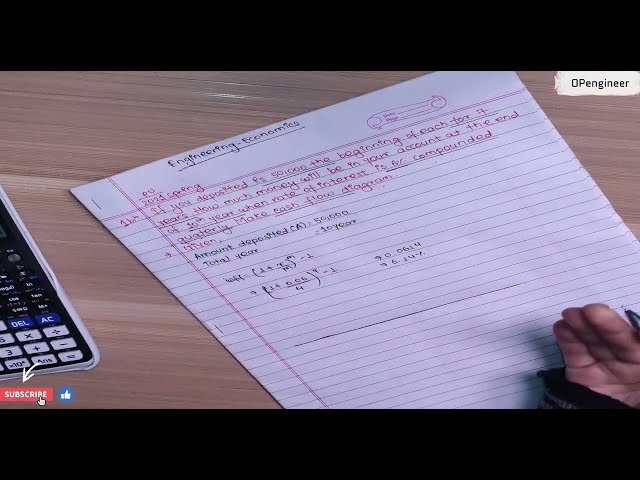 OPengineer
Engineering-Economics
2021 spring
1b. If you deposited Rs 50,000 the beginning of each for 7
years. How much money will be in your account at the end
of 10th year when rate of interest is 6% compounded
quaterly. Make cash flow diagram.
→ Given,
Amount deposited (A) = 50,000
Total year = 10 year
ieff = (1+ r/m)^m - 1
⇒ (1+ 0.06/4)^4 - 1
⇒ 0.0614
⇒ 6.14%
DEL AC
Ans
SUBSCRIBE